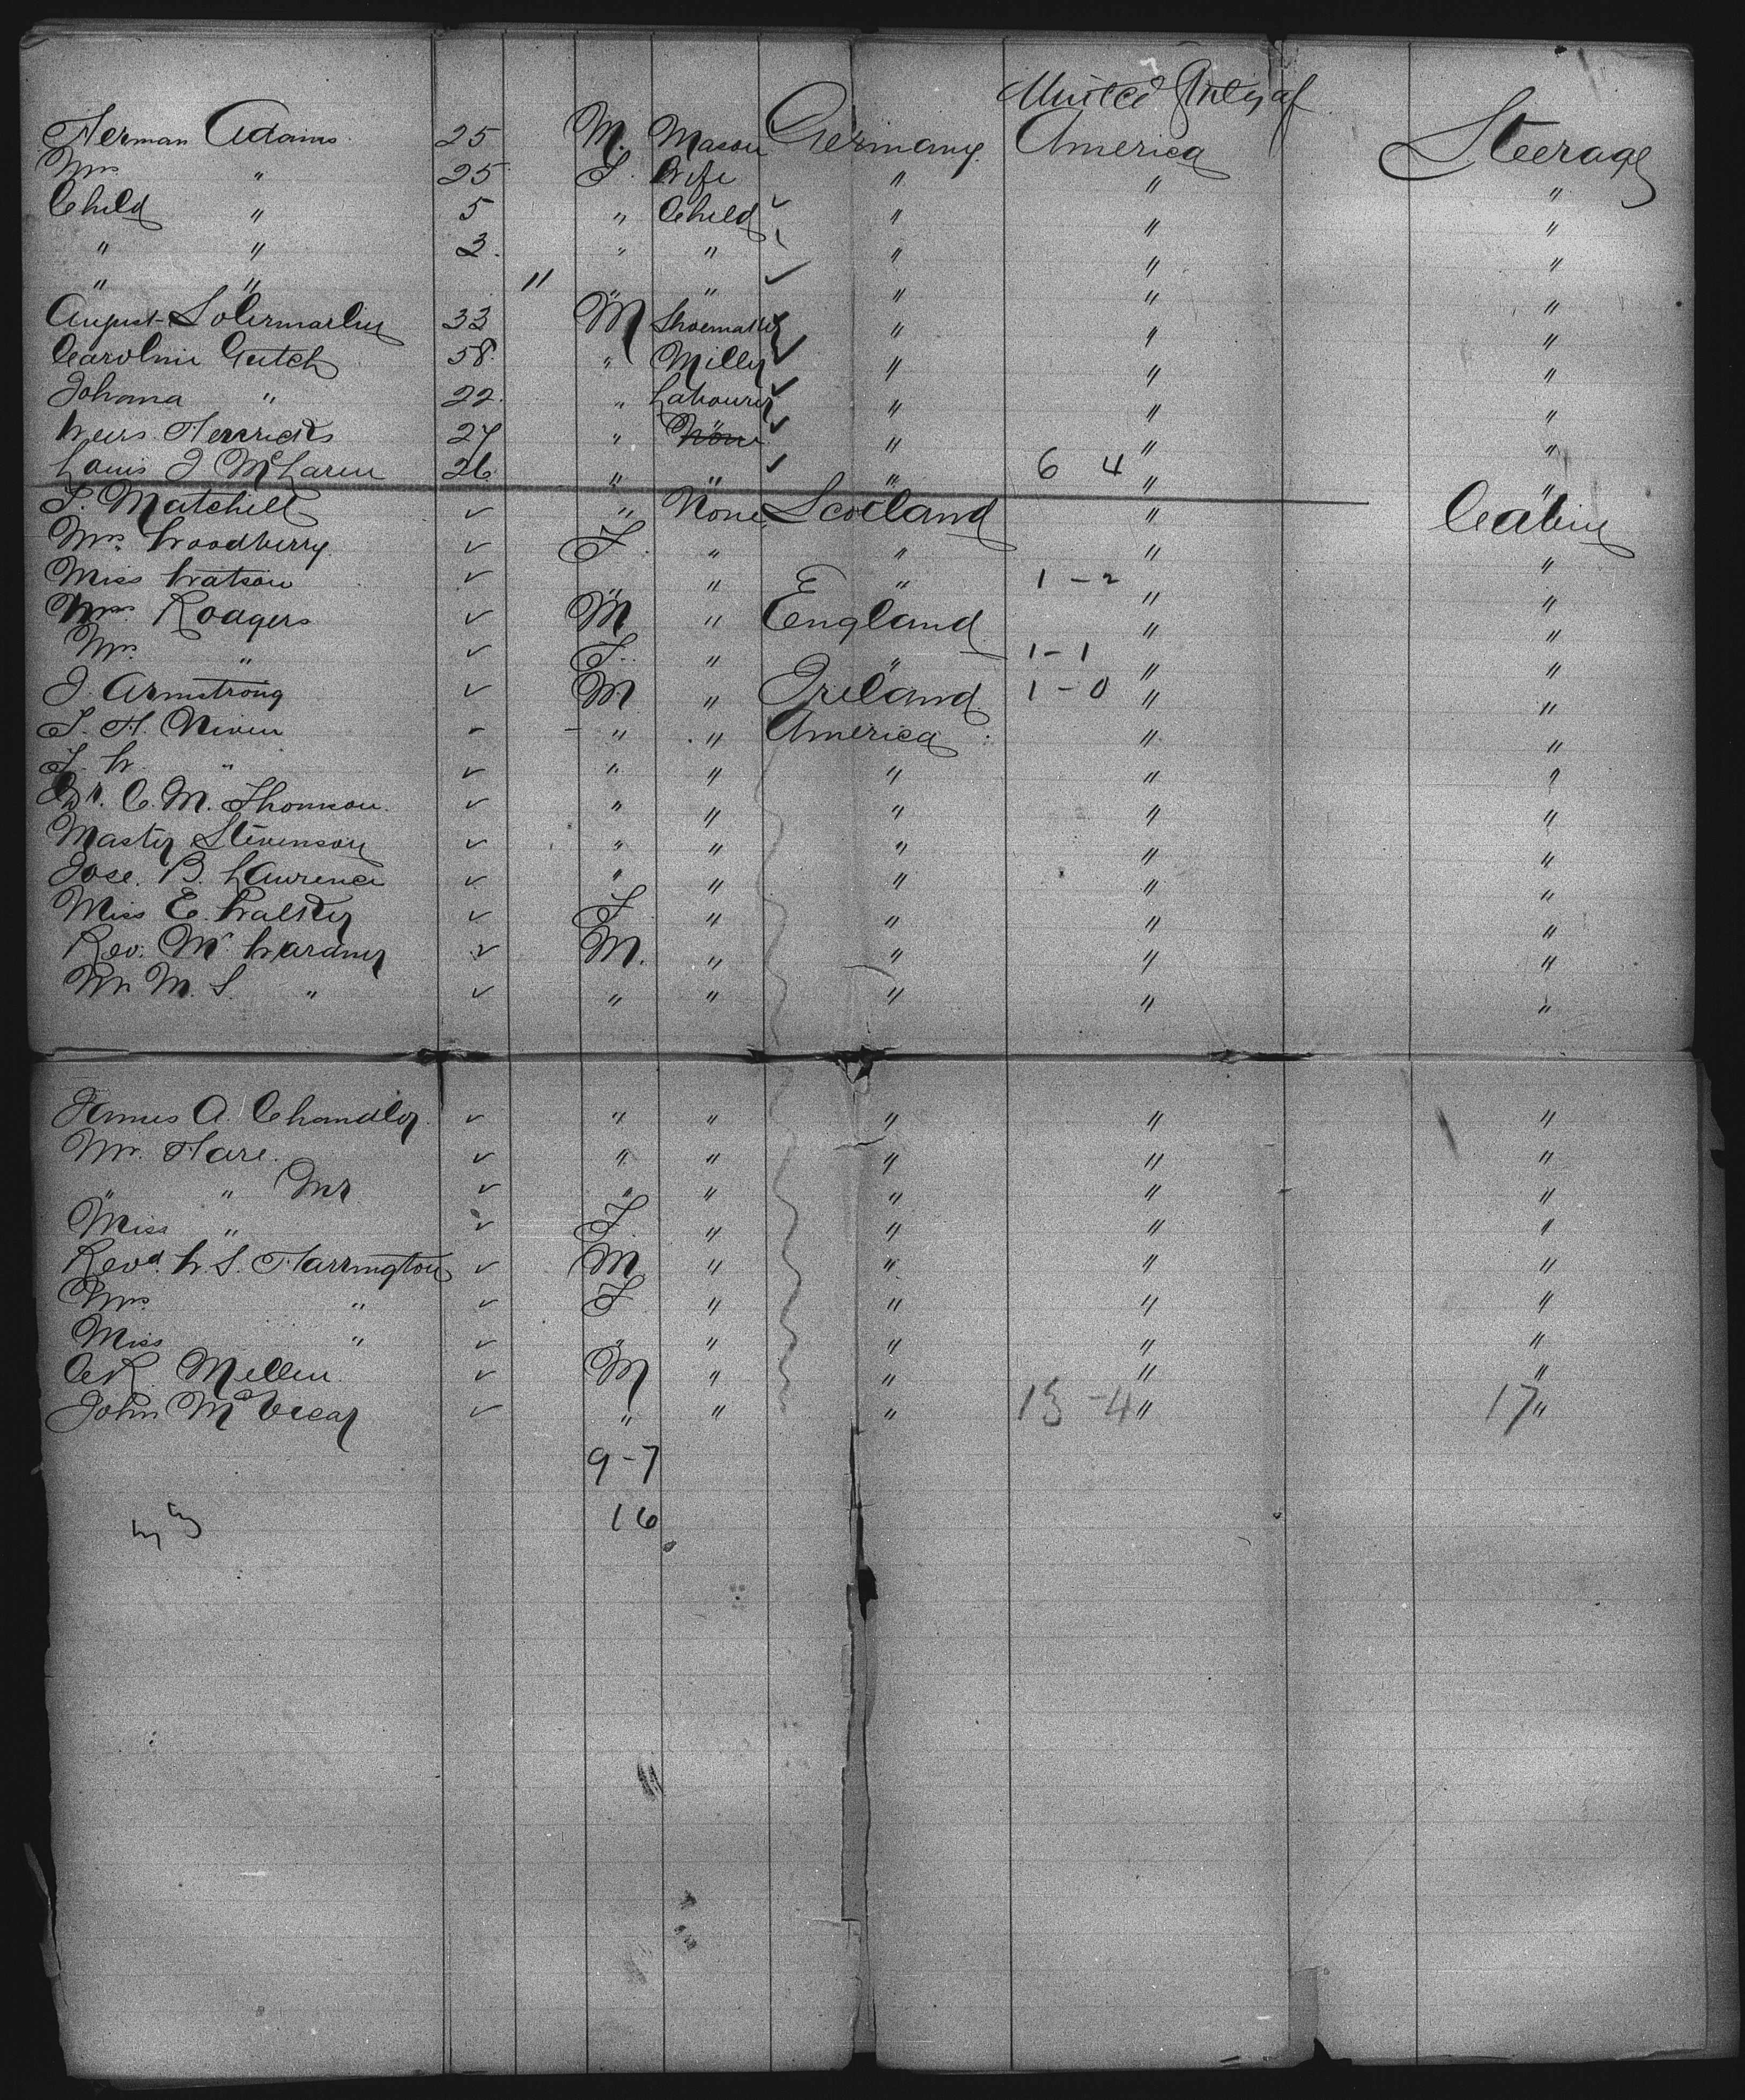 United States of
Herman Adams 25 M. Mason Germany America Steerage
Mrs " 25 F. Wife " " "
Child " 5 " Child " " "
" " 3. " " " " "
" " 11 " " " " "
August 33 M Shoemaker " " "
Caroline Gutch 58. " Miller " " "
Johana " 22. " Labourer " " "
Herricks 27 " " " " "
Louis J McLaren 26 " " " 6 4 " "
Matchett " None Scotland " Cabin
Mrs. Woodberry F. " " " "
Miss Watson " " " 1-2 " "
Mr. Roagers M " England " "
Mrs. " F. " " 1-1 " "
J. Armstrong M " Ireland 1-0 " "
H. Niven - " " America " "
" " " " " "
Dr. C. M. Thomson " " " " "
Master Stevenson " " " " "
Jose. B. Lawrence " " " " "
Miss E. Walker F " " " "
Rev. Mr Wardner M. " " " "
M. S. " " " " " "
James A. Chandler " " " " "
Mr. Hare. " " " " "
" " Mr " " " " "
Miss " F. " " " "
Revd. W. S. Harrington M " " " "
Mrs. " F " " " "
Miss " " " " " "
Mellen M " " " "
John McVicar " " " 13-4 " 17 "
9-7
16